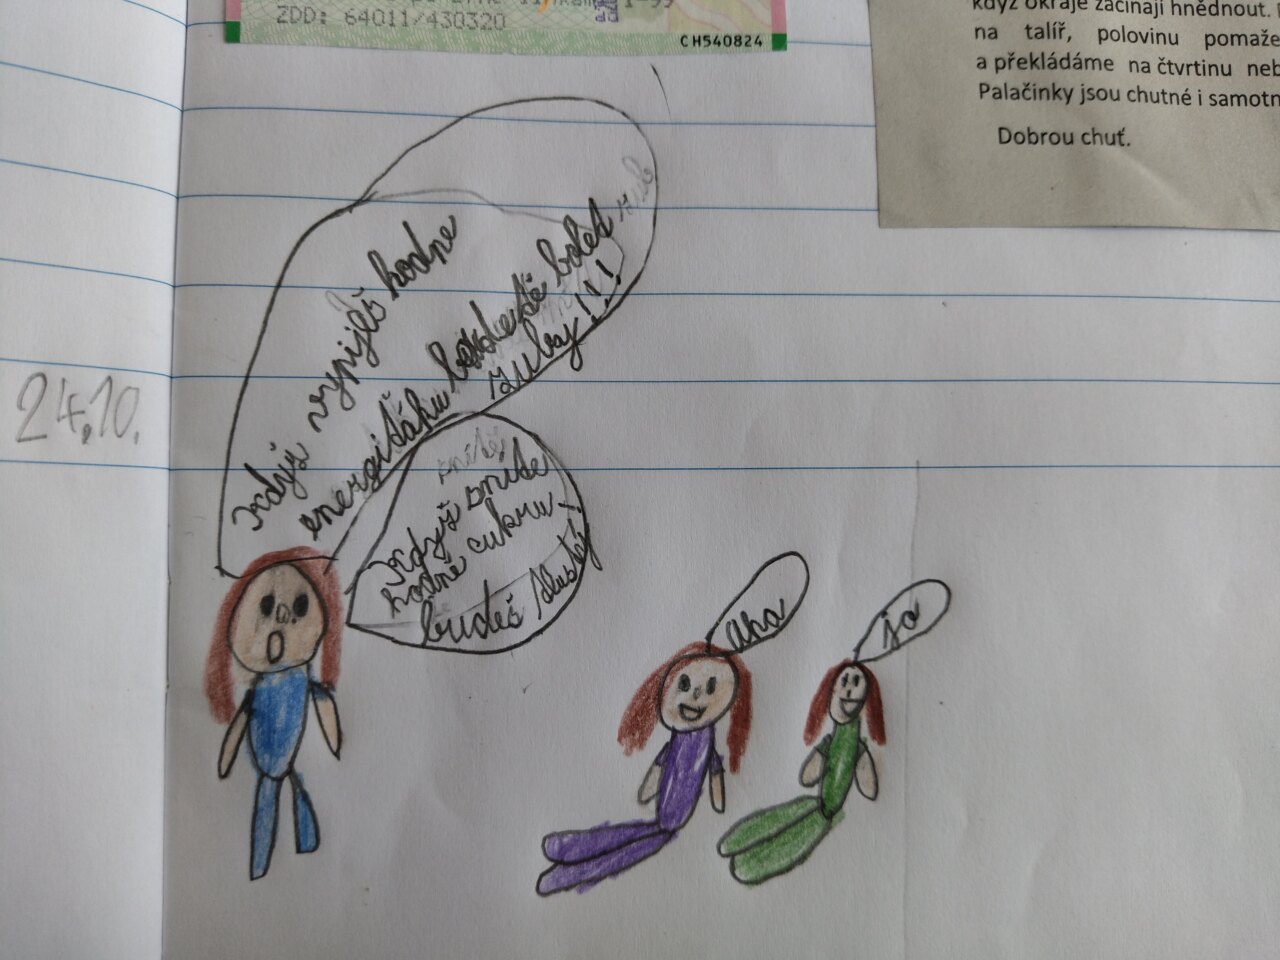 ZDD: 64011/430320
CH540824
když okraje začínají hnědnout.
na talíř, polovinu pomaže
a překládáme na čtvrtinu neb
Palačinky jsou chutné i samotn
Dobrou chuť.
24.10.
když vypiješ hodne
energiťáku budetě bolet
zuby!!!
sníte
Když sníte
hodně cukru
budeš tlustej!
aha
jo